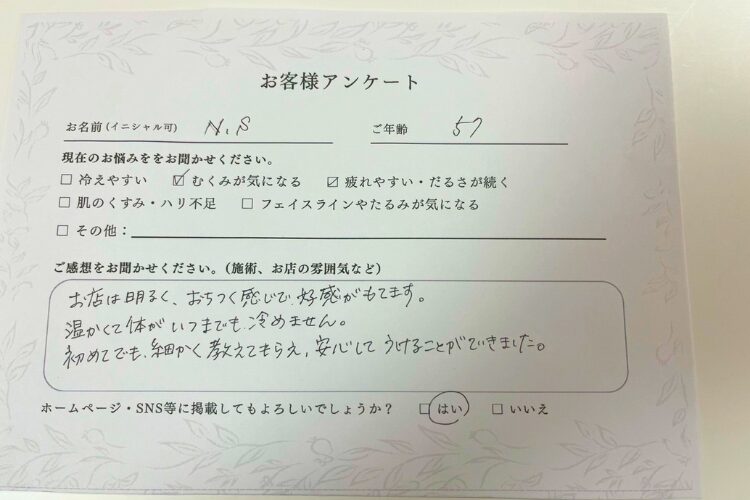 お客様アンケート
お名前(イニシャル可) N.S ご年齢 57
現在のお悩みををお聞かせください。
□ 冷えやすい ☑ むくみが気になる ☑ 疲れやすい・だるさが続く
□ 肌のくすみ・ハリ不足 □ フェイスラインやたるみが気になる
□ その他：
ご感想をお聞かせください。(施術、お店の雰囲気など)
お店は明るく、おちつく感じで、好感がもてます。
温かくて体がいつまでも冷めません。
初めてでも、細かく教えてもらえ、安心してうけることができました。
ホームページ・SNS等に掲載してもよろしいでしょうか？ □ はい □ いいえ